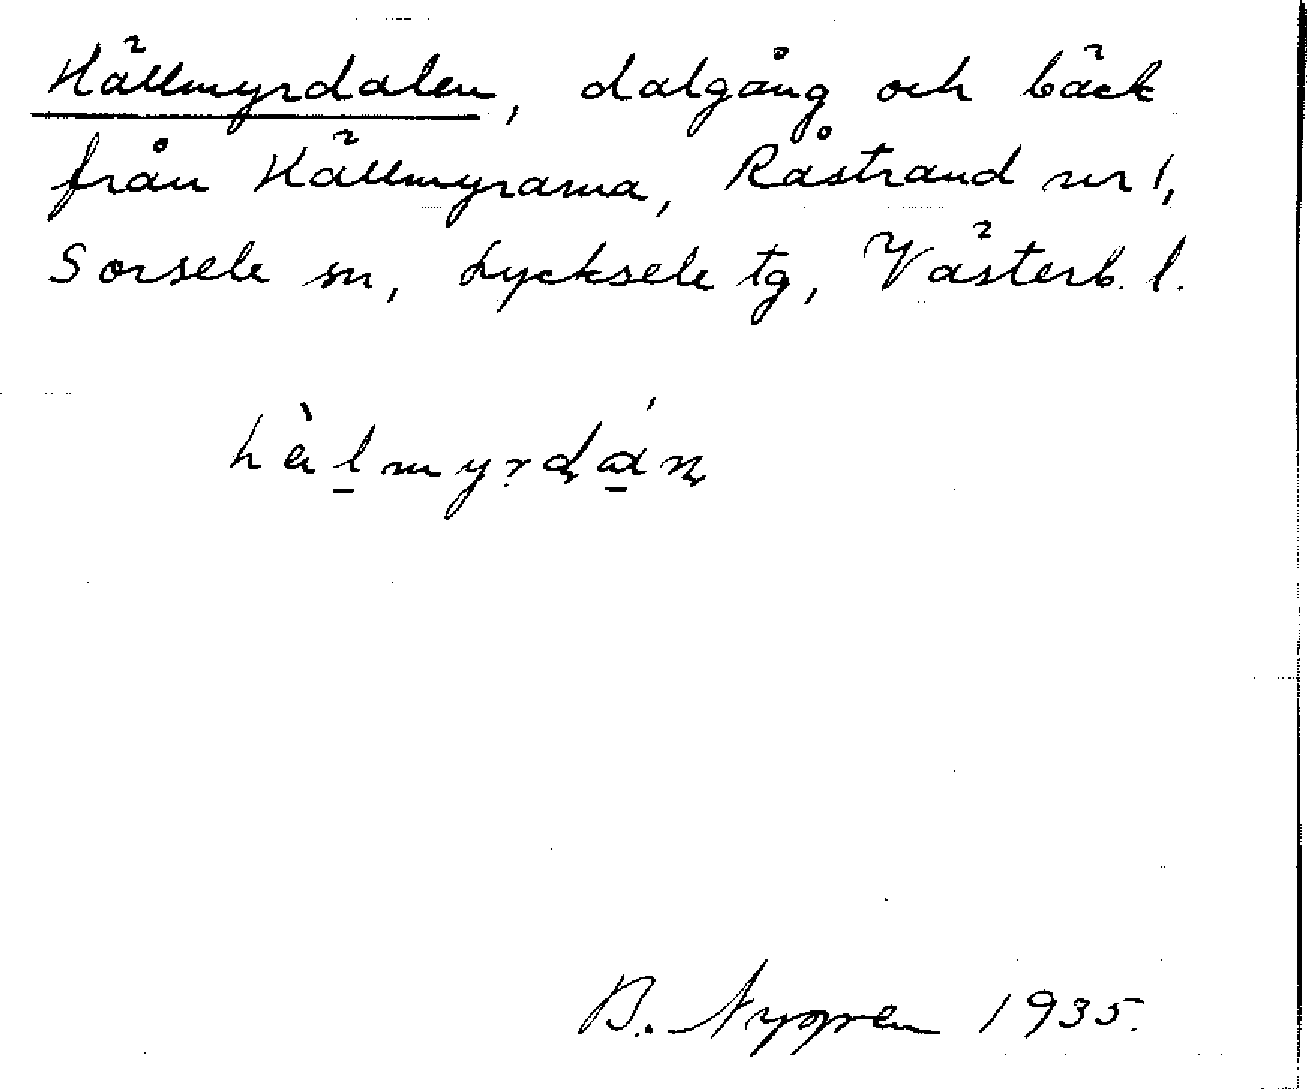 Hällmyrdalen, dalgång och bäck
från Hällmyrarna, Råstrand nr 1,
Sorsele sn, Lycksele tg, Västerb. l.
hὰl̠myrḍά̠ṇ
B. Nygren 1935.